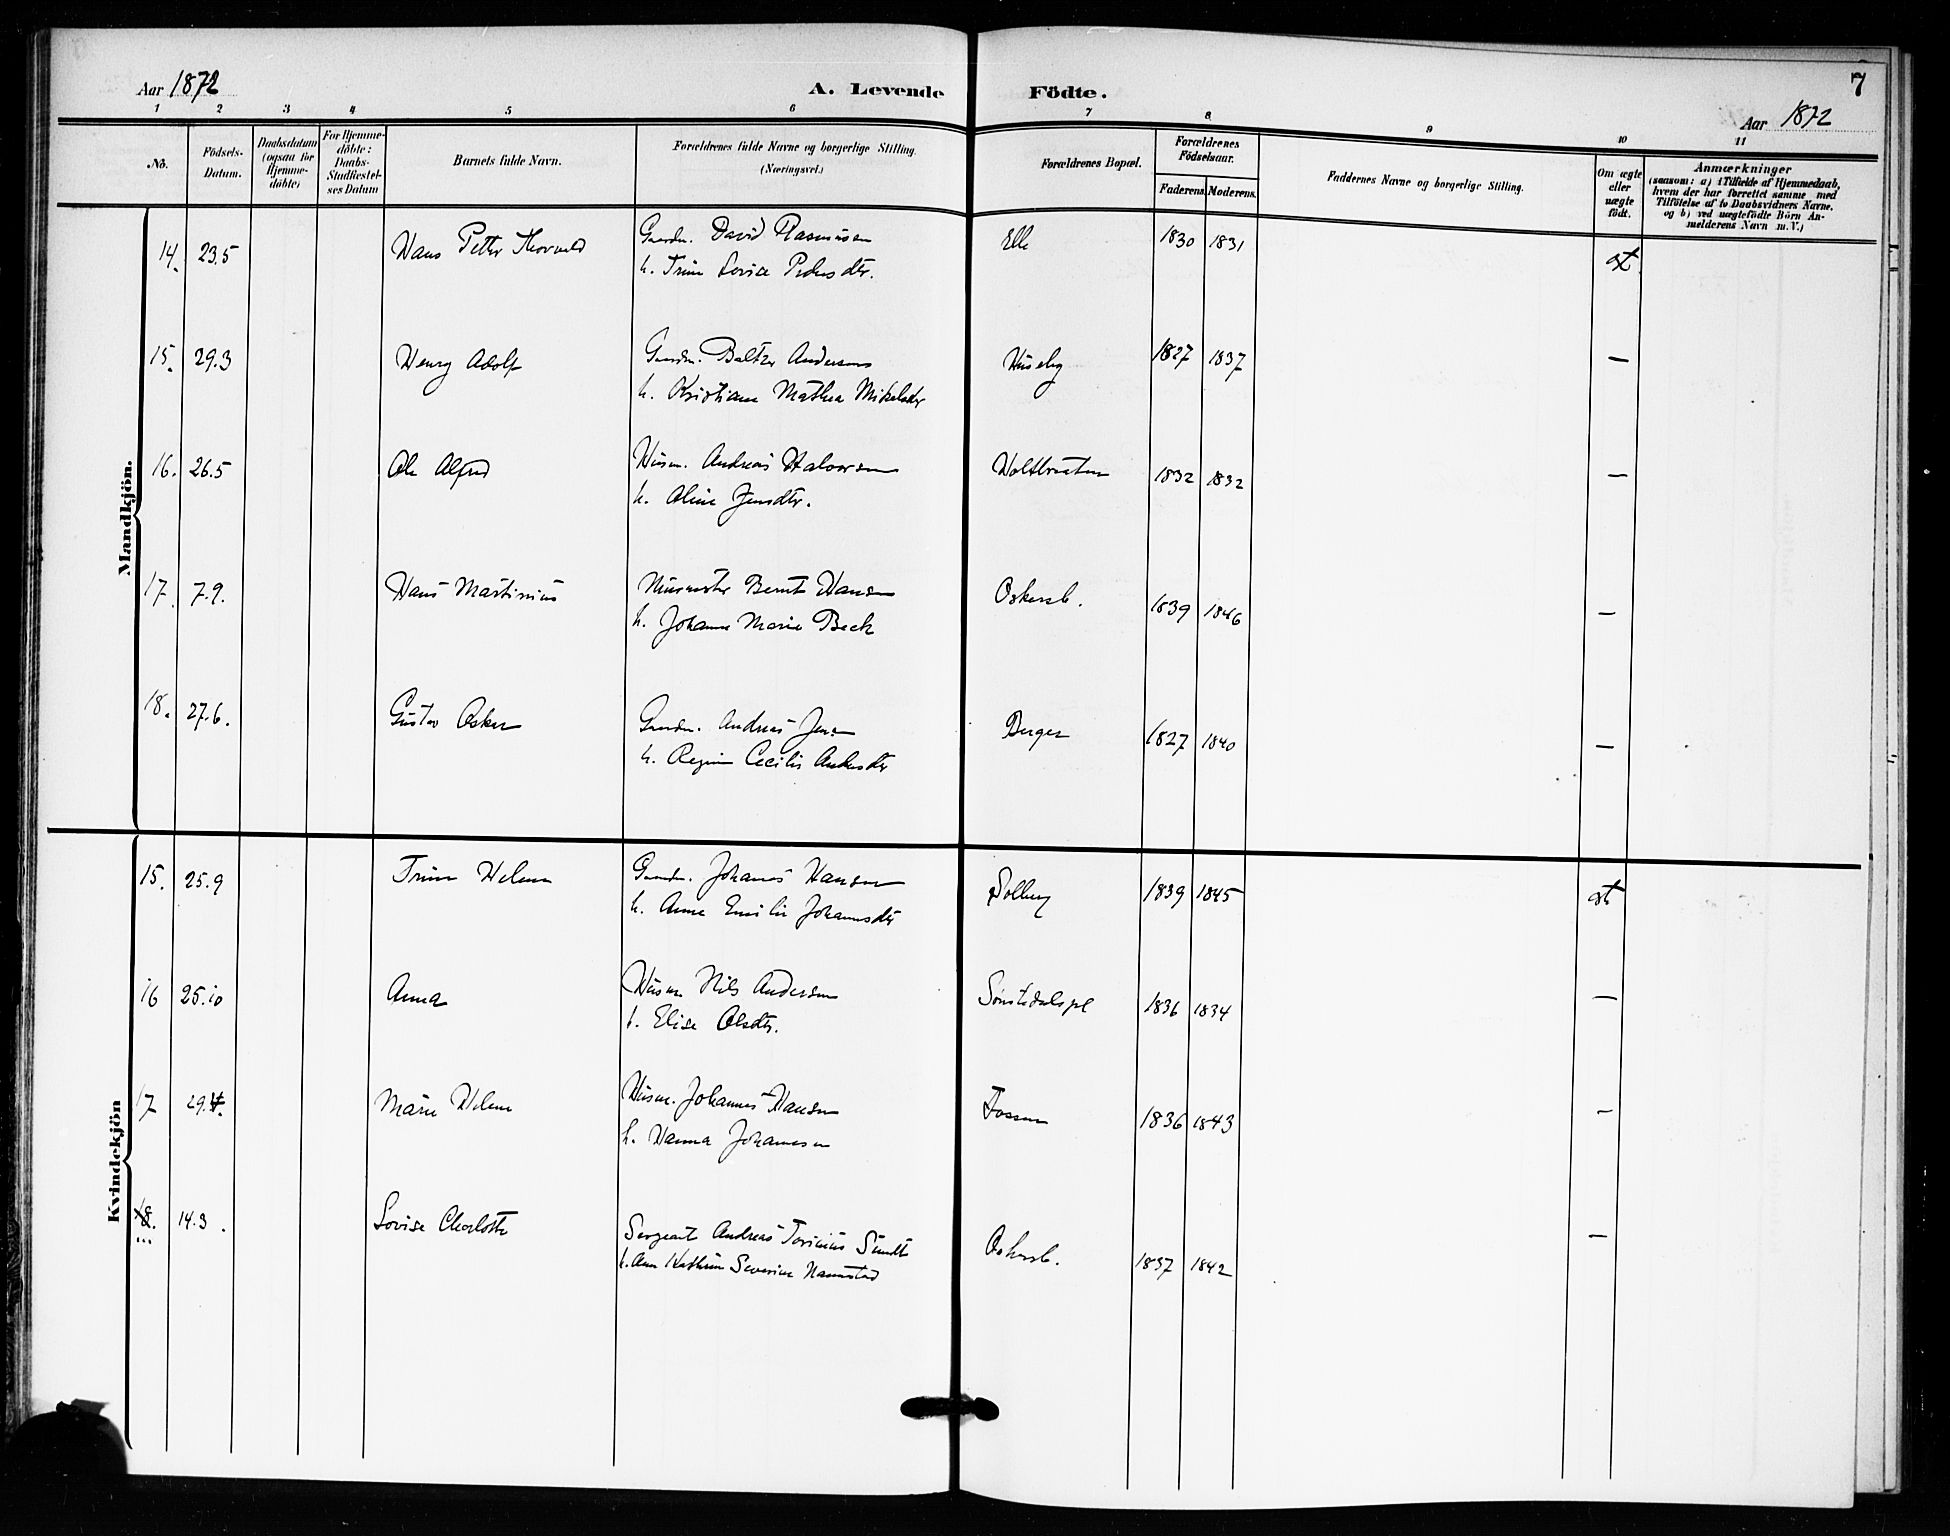 Aar 1872
A. Levende Födte.
7
Aar 1872
1 2 3 4 5 6 7 8 9 10 11
No.
Födsels-Datum.
Daabsdatum (ogsaa for Hjemmedöbte)
For Hjemmedöbte: Daabs-Stadfæstelses Datum
Barnets fulde Navn.
Forældrenes fulde Navne og borgerlige Stilling. (Næringsvei.)
Forældrenes Bopæl.
Forældrenes Födselsaar.
Faderens. Moderens.
Faddernes Navne og borgerlige Stilling.
Om ægte eller uægte födt.
Anmærkninger
(saasom: a) i Tilfælde af Hjemmedaab, hvem der har forrettet samme med Tilföielse af to Daabsvidners Navne, og b) ved uægtefödte Börn Anmelderens Navn m.V.)
Mandkjön.
14. 23.5 Hans Petter Thorvald Gaardm. David Rasmussen Elle 1830 1831
h. Trine Lovise Pedersdtr.
15. 29.3 Henry Adolf Gaardm. Baltzer Andersen Huseby 1827 1837 —
h. Kristiane Mathea Mikelsdtr
16. 26.5 Ole Alfred Husm. Andreas Halvorsen Holtbraaten 1832 1832 —
h. Oline Jensdtr.
17. 7.9. Hans Martinius Murmester Bernt Hansen Oskarsb. 1839 1846 —
h. Johanne Marie Beck
18. 27.6. Gustav Oskar Gaardm. Andreas Jensen Berger 1827 1840 —
h. Regine Cecilie Andersdtr
Kvindekjön
15. 25.9 Trine Helene Gaardm. Johannes Hansen Solberg 1839 1845
h. Anne Emilie Johannesdtr
16 25.10 Anna Husm. Nils Andersen 1836 1834 —
h. Elise Olsdtr.
17 29.4. Marie Helene Husm. Johannes Hansen Fossum 1836 1843 —
h. Hanna Johannesen
18. 14.3. Lovise Charlotte Sergeant Andreas Sundt Oskarsb. 1837 1842 —
h. Ane Kathrine Severine